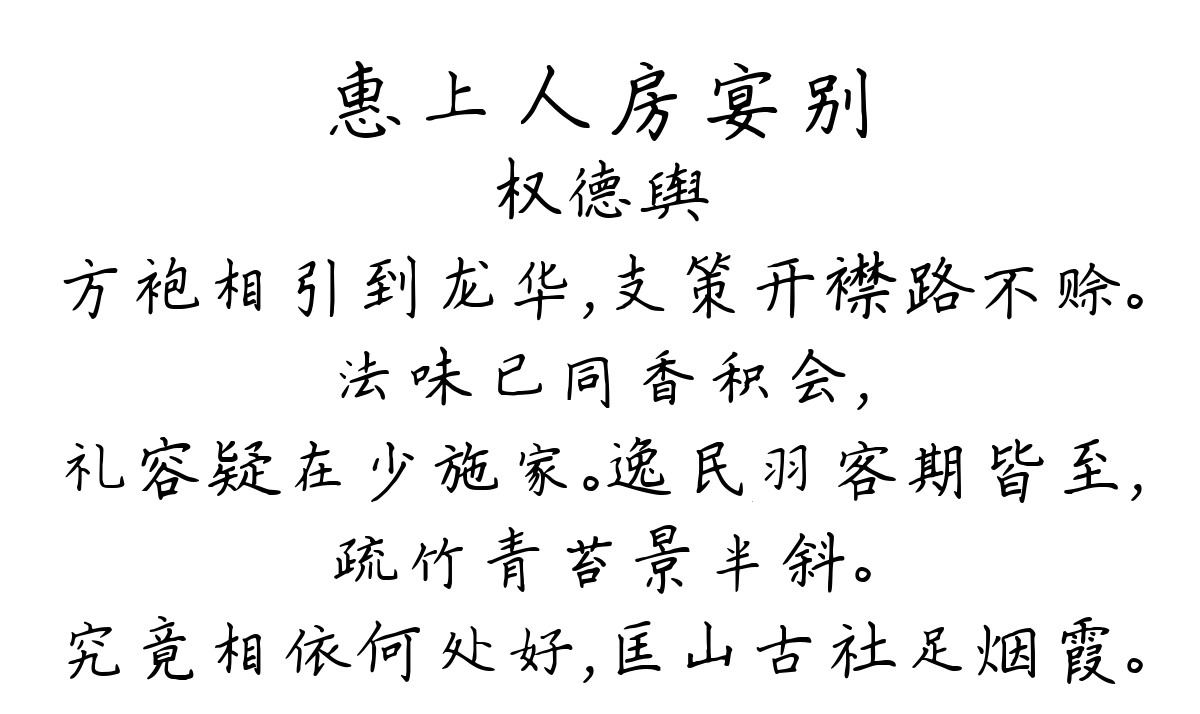 惠上人房宴别
权德舆
方袍相引到龙华,支策开襟路不赊。
法味已同香积会,
礼容疑在少施家。逸民羽客期皆至,
疏竹青苔景半斜。
究竟相依何处好,匡山古社足烟霞。